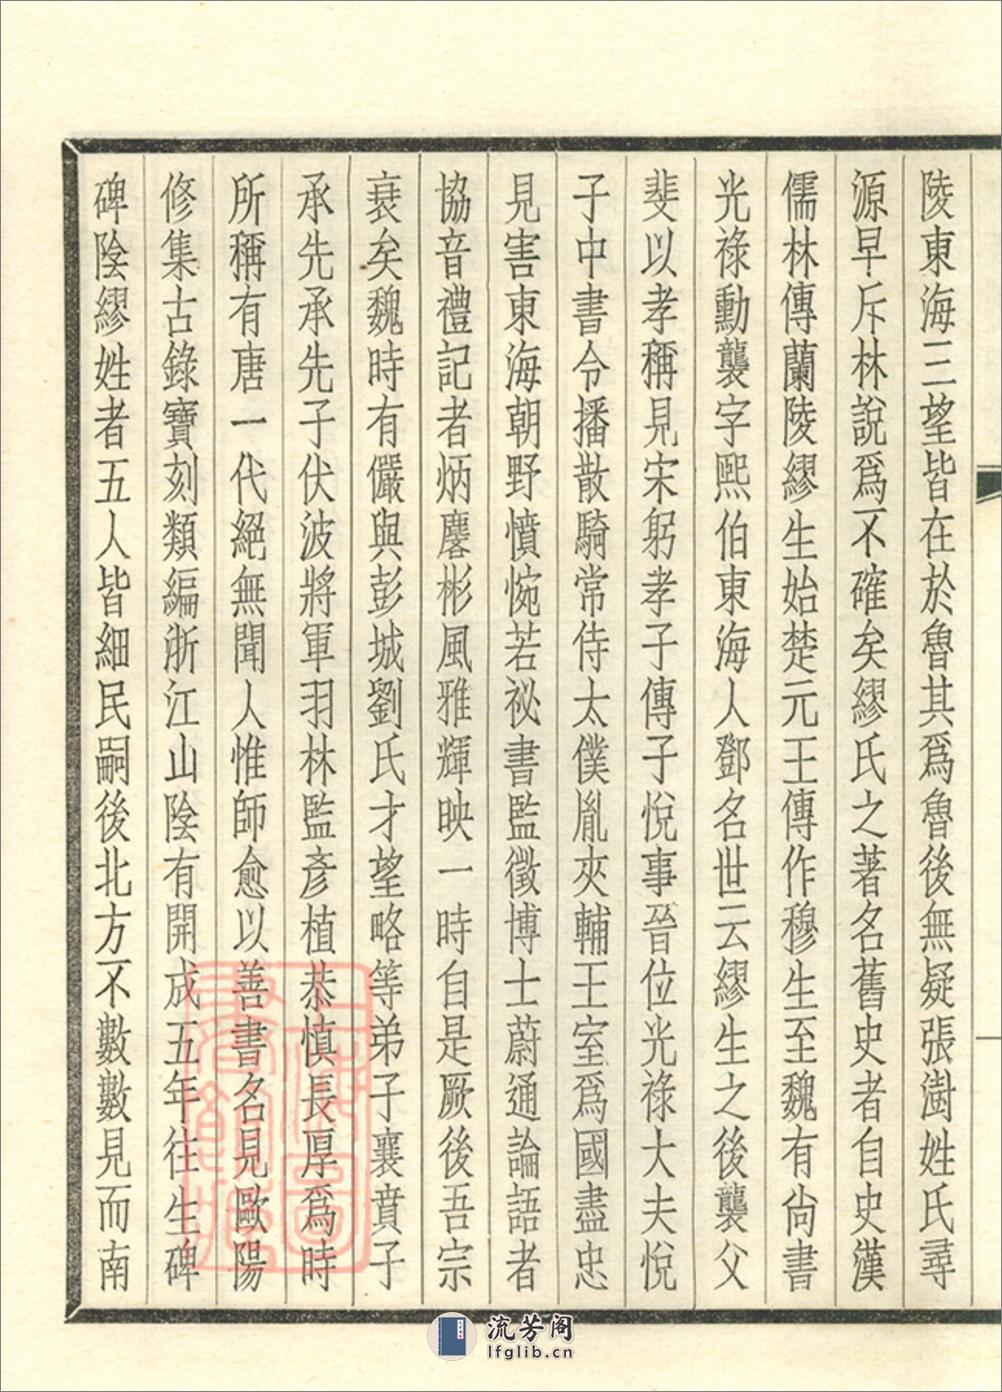 陵東海三望皆在於魯其爲魯後無疑張澍姓氏尋
源早斥林說爲不確矣繆氏之著名舊史者自史漢
儒林傳蘭陵繆生始楚元王傳作穆生至魏有尙書
光祿勳襲字熙伯東海人鄧名世云繆生之後襲父
斐以孝稱見宋躬孝子傳子悅事晉位光祿大夫悅
子中書令播散騎常侍太僕胤夾輔王室爲國盡忠
見害東海朝野憤惋若祕書監徵博士蔚通論語者
協音禮記者炳麐彬風雅輝映一時自是厥後吾宗
衰矣魏時有儼與彭城劉氏才望略等弟子襄賁子
承先承先子伏波將軍羽林監彥植恭慎長厚爲時
所稱有唐一代絕無聞人惟師愈以善書名見歐陽
修集古錄寶刻類編浙江山陰有開成五年往生碑
碑陰繆姓者五人皆細民嗣後北方不數數見而南
上海圖書館藏
流芳阁
lfglib.cn